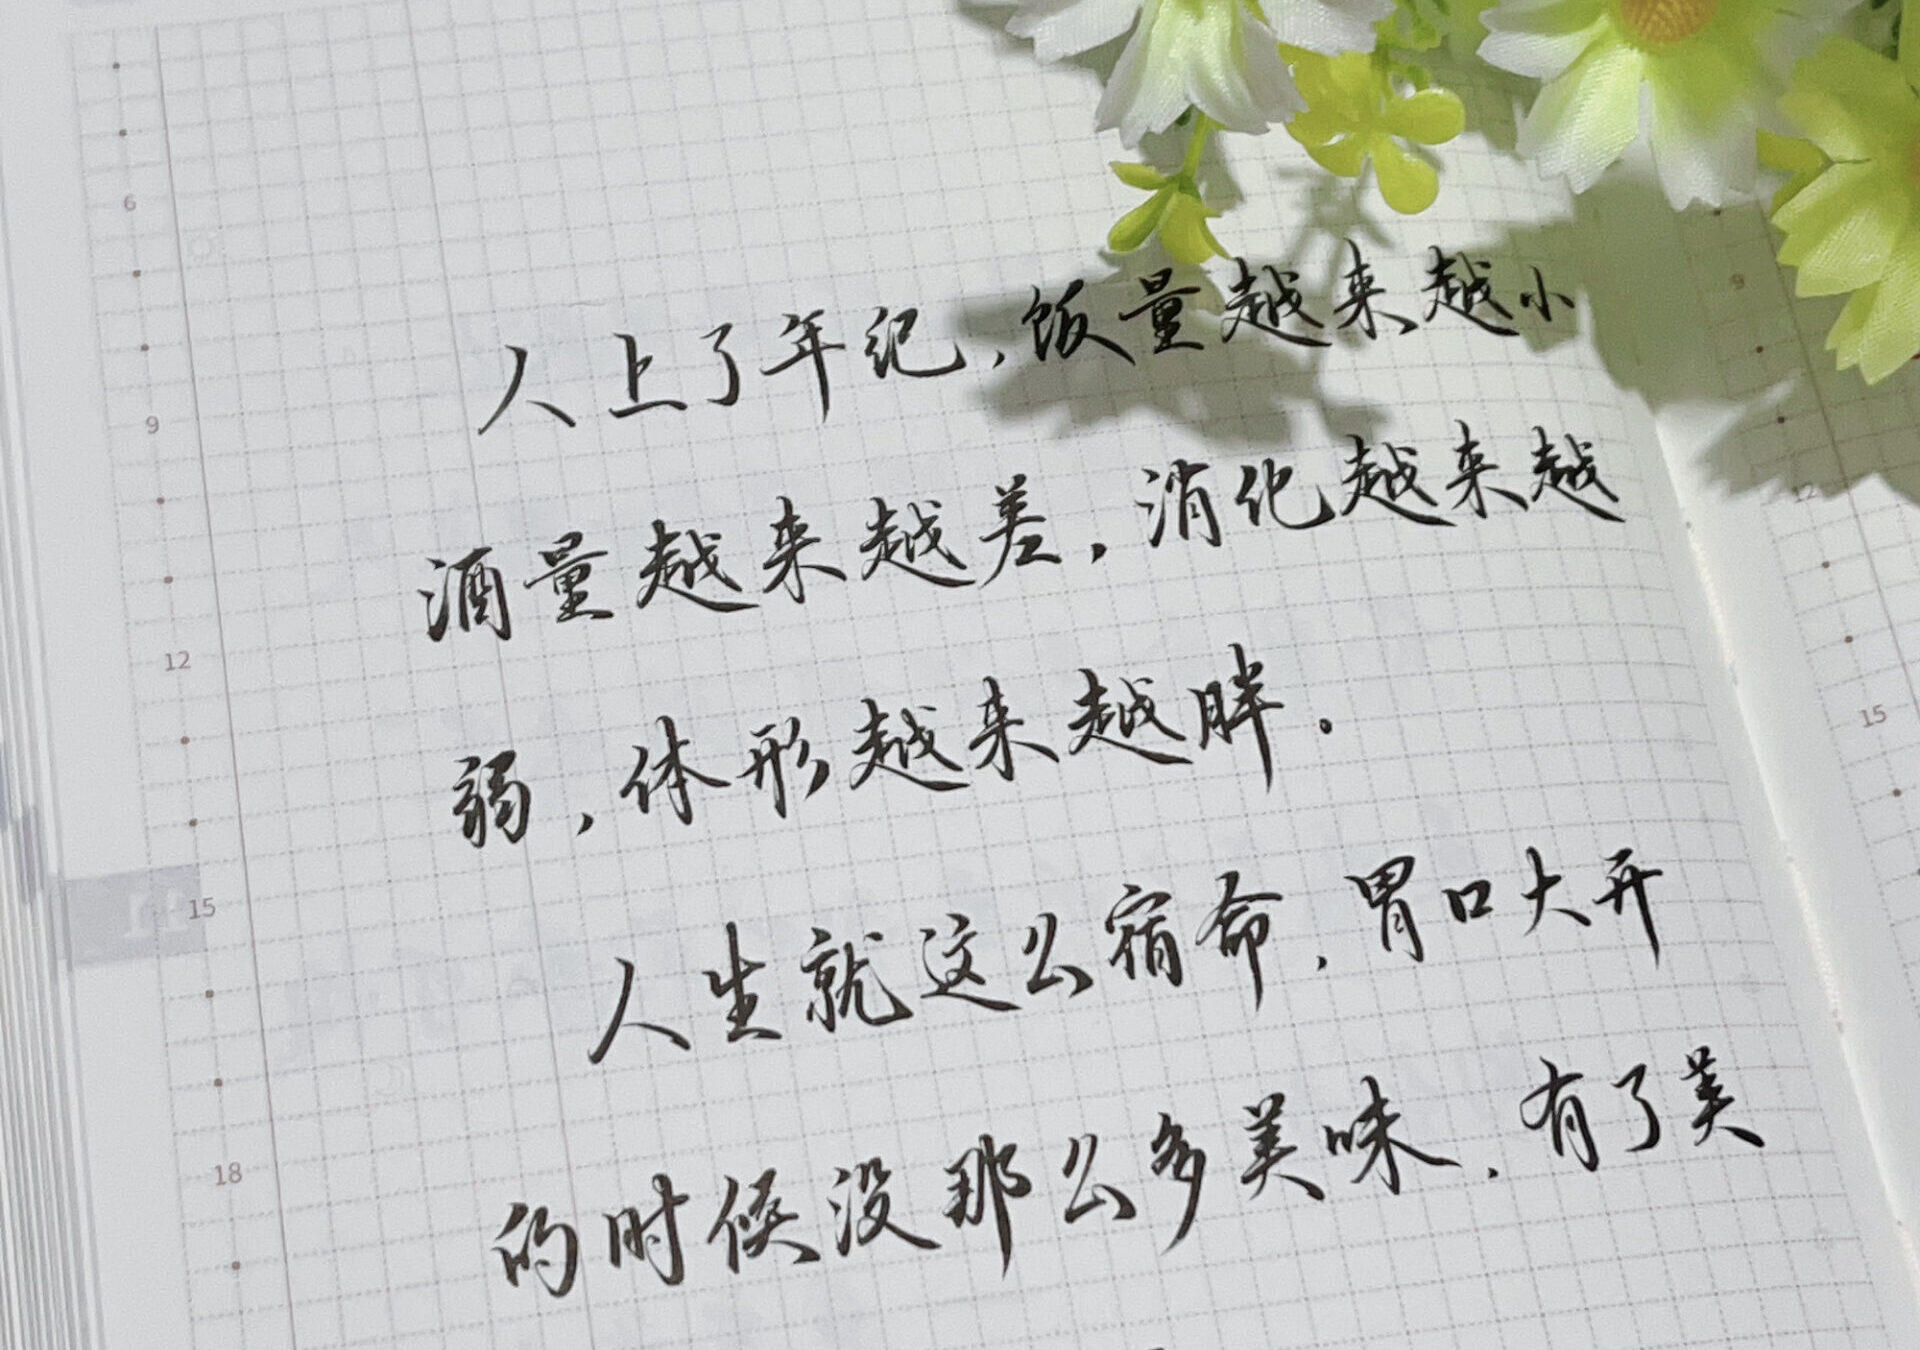 人上了年纪,饭量越来越小
酒量越来越差,消化越来越
弱,体形越来越胖.
人生就这么宿命,胃口大开
的时候没那么多美味,有了美
6
9
12
15
18
9
12
15
11